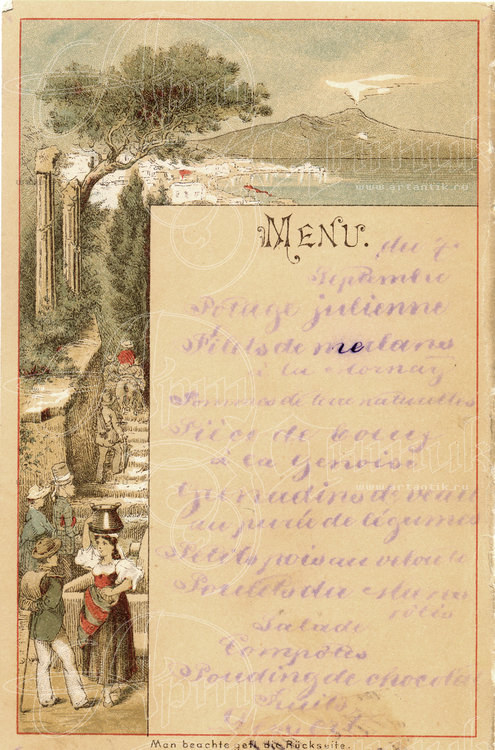 MENU.
du 7e
Septembre
Potage julienne
Filets de merlans
à la Mornay
Pommes de terre naturelles
Pièce de
à la Genoise
Grenadins de veau
au purée de légumes
Petits pois au velouté
Poulets du
rôtis
Salade
Compôtes
Pouding de chocolat
Fruits
Dessert
Man beachte gefl. die Rückseite.
www.artantik.ro
www.artantik.ro